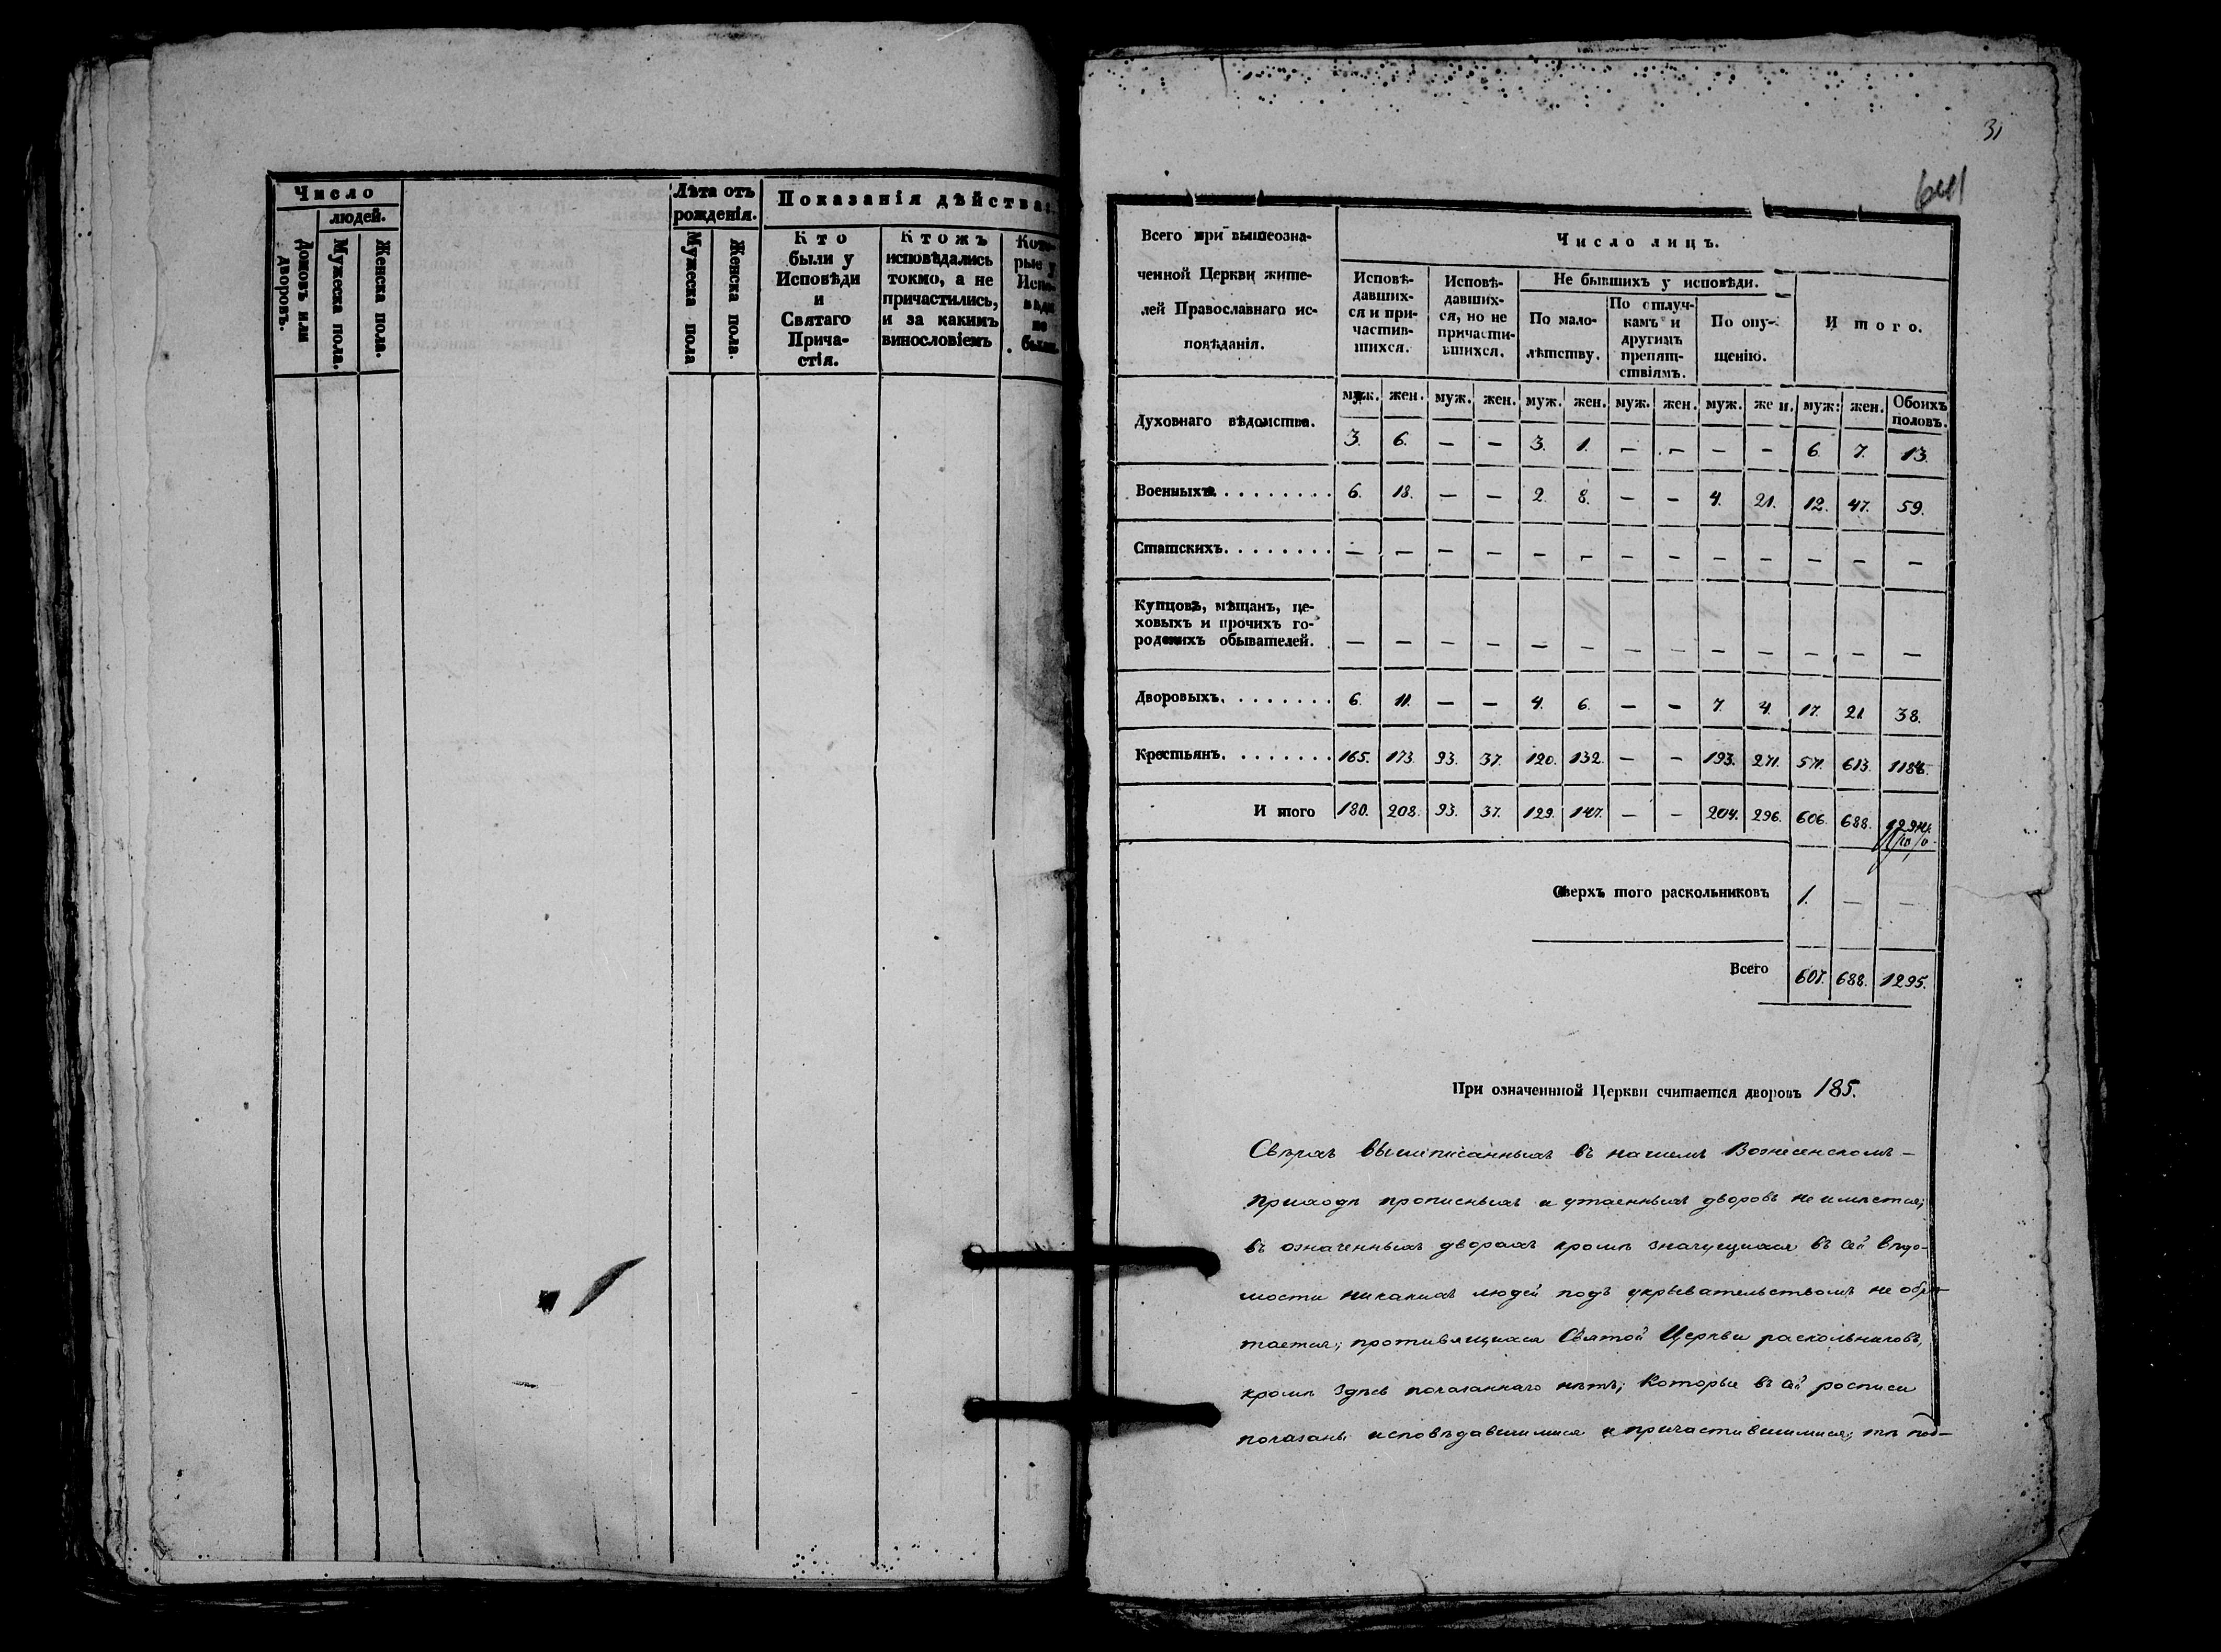 Число
людей.
Домовъ или дворовъ.
Мужеска пола.
Женска пола.
Лѣта отъ
рожденія.
Мужеска пола
Женска пола.
Показанія дѣйства:
Кто
были у
Исповѣди
и
Святаго
Прича-
стія.
Ктожъ
исповѣдались
токмо, а не
причастились,
и за какимъ
винословіемъ
Кото-
рые у
Испо-
вѣди
не
были.
31
641
Всего при вышеозна-
ченной Церкви жите-
лей Православнаго ис-
повѣданія.
Число лицъ.
Исповѣ-
давших-
ся и при-
частив-
шихся.
Исповѣ-
давших-
ся, но не
причасти-
вшихся.
Не бывшихъ у исповѣди.
По мало-
лѣтству.
По отлуч-
камъ и
другимъ
препят-
ствіямъ.
По опу-
щенію.
Итого.
муж. жен. муж. жен. муж. жен. муж. жен. муж. жен. муж: жен. Обоихъ половъ.
Духовнаго вѣдомства. 3. 6. — — 3. 1. — — — — 6. 7. 13.
Военныхъ. . . . . . . . 6. 18. — — 2. 8. — — 4. 21. 12. 47. 59.
Статскихъ. . . . . . . . — — — — — — — — — — — — —
Купцовъ, мѣщанъ, це-
ховыхъ и прочихъ го-
родскихъ обывателей. — — — — — — — — — — — — —
Дворовыхъ. . . . . . . . 6. 11. — — 4. 6. — — 7. 4. 17. 21. 38.
Крестьянъ. . . . . . . . 165. 173. 93. 37. 120. 132. — — 193. 271. 571. 613. 1184.
И того 180. 208. 93. 37. 129. 147. — — 204. 296. 606. 688. 1294.
Сверхъ того раскольниковъ 1. — —
Всего 607. 688. 1295.
При означеннной Церкви считается дворовъ 185.
Сверхъ вышеписанныхъ въ нашемъ Вознесенскомъ –
приходѣ прописныхъ и утаенныхъ дворовъ не имѣется;
въ означенныхъ дворахъ кромѣ значущихся въ сей вѣдо-
мости никакихъ людей подъ укрывательствомъ не обрѣ-
тается; противящихся Святой Церкви раскольниковъ,
кромѣ здѣсь показаннаго нѣтъ; Которые въ сей росписи
показаны исповѣдавшимися и причастившимися, тѣ под-